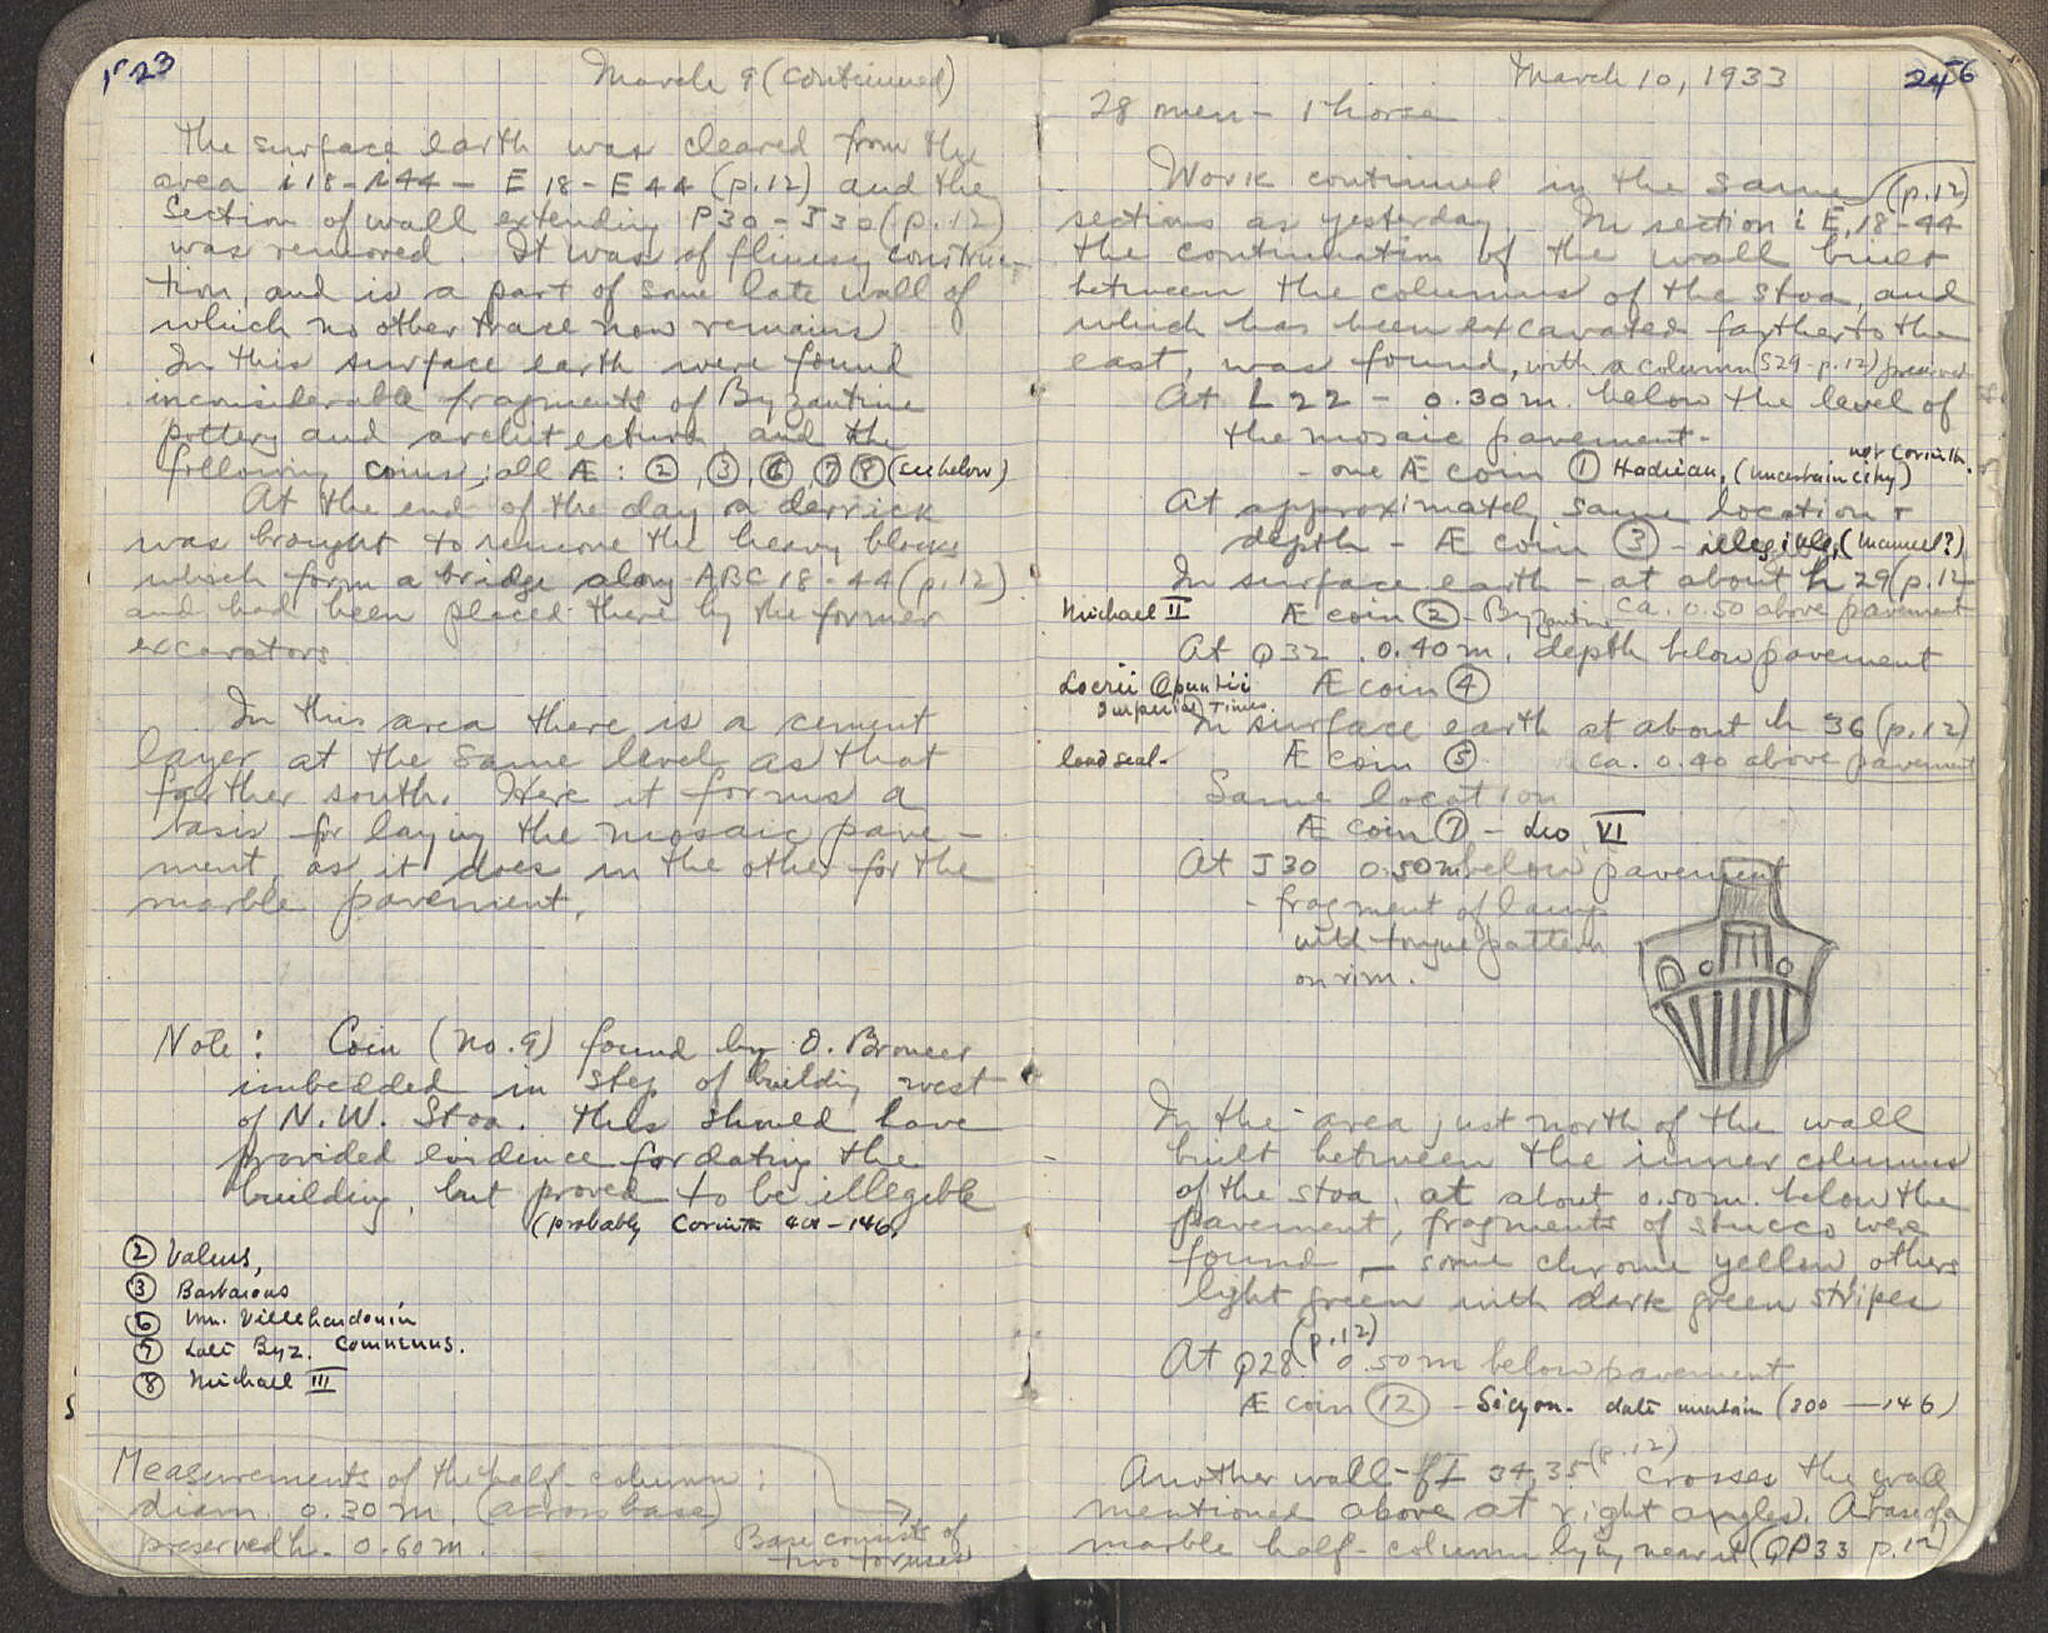 23
March 9 (continued)
The surface earth was cleared from the
area i18-i44 - E18-E44 (p.12) and the
section of wall extending P30-J30 (p.12)
was removed. It was of flimsy construc-
tion, and is a part of some late wall of
which no other trace now remains.
In this surface earth were found
inconsiderable fragments of Byzantine
pottery and architecture, and the
following coins, all Æ: ②, ③, ⑥, ⑦ ⑧ (see below)
At the end of the day a derrick
was brought to remove the heavy blocks
which form a bridge along ABC 18-44 (p.12)
and had been placed there by the former
excavators.
In this area there is a cement
layer at the same level as that
farther south. Here it forms a
basis for laying the mosaic pave-
ment, as it does in the other for the
marble pavement.
Note: Coin (no. 9) found by O. Broneer
imbedded in step of building west
of N.W. Stoa. This should have
provided evidence for dating the
building, but proved to be illegible
(probably Corinth 400-146)
② Valens,
③ Barbarous
⑥ Wm. Villehardouin
⑦ Late Byz. Comnenus.
⑧ Michael III
Measurements of the half-column:
diam. 0.30 m. (across base)
preserved h. 0.60 m.
Base consists of
two toruses
March 10, 1933
24
56
28 men - 1 horse
Work continued in the same (p.12)
sections as yesterday. In section i E, 18-44
the continuation of the wall built
between the columns of the stoa, and
which has been excavated farther to the
east, was found, with a column (S29 - p.12) preserved
At L22 - 0.30 m. below the level of
the mosaic pavement -
- one Æ coin ① Hadrian, (uncertain city) not Corinth.
At approximately same location +
depth - Æ coin ③ - illegible, (Manuel?)
In surface earth - at about h 29 (p.12
ca. 0.50 above pavement
Michael II Æ coin ② - Byzantine
At Q32 . 0.40 m. depth below pavement
Locrii Opuntii Æ coin ④
Imperial Times.
In surface earth at about h 36 (p.12)
lead seal - Æ coin ⑤ ca. 0.40 above pavement
Same location
Æ coin ⑦ - Leo VI
At J30 0.50 m below pavement
- fragment of lamp
with tongue pattern
on rim.
In the area just north of the wall
built between the inner columns
of the stoa, at about 0.50 m. below the
pavement, fragments of stucco were
found - some chrome yellow, others
light green with dark green stripes
At Q28 (p.12) 0.50 m below pavement
Æ coin ⑫ - Sicyon. date uncertain (300 — 146)
Another wall - 34,35 (p.12) crosses the wall
mentioned above at right angles. A base of a
marble half-column lying near it (QP33 p.12)